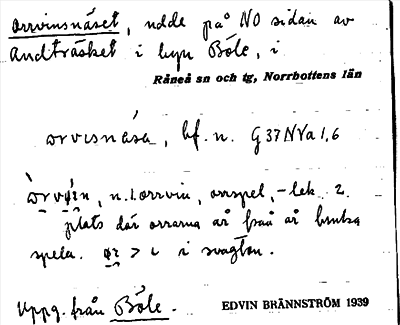 orrvinsnäset, udde på NO sidan av
Andträsket i byn Böle, i
Råneå sn och tg, Norrbottens län
orvısnása, bf. n. G37NVa1,6
n. 1. orrvin, orrspel, -lek 2.
plats där orrarna år från år bruka
spela. > i svagton.
Uppg. från Böle.
EDVIN BRÄNNSTRÖM 1939